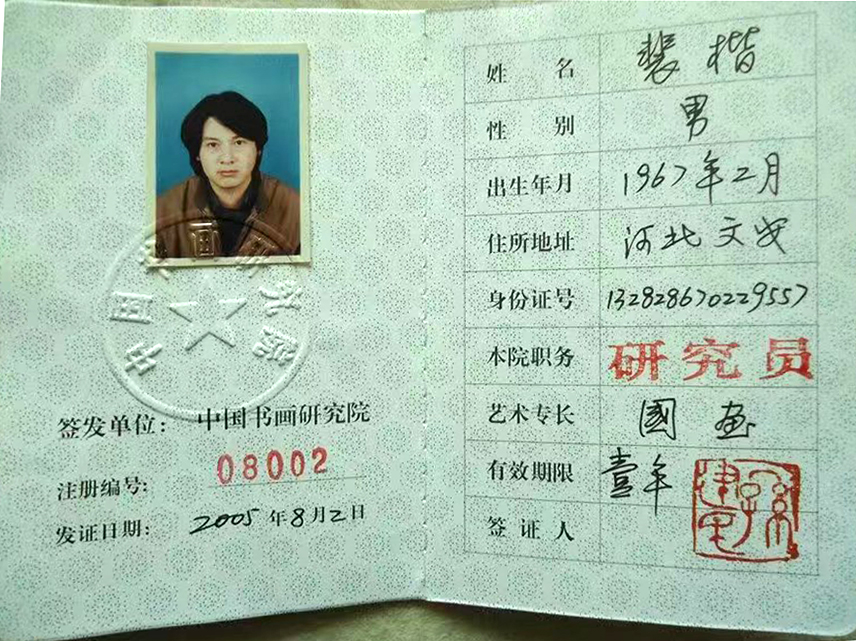 签发单位：中国书画研究院
注册编号：08002
发证日期：2005年8月2日
姓名 裴楷
性别 男
出生年月 1967年二月
住所地址 河北文安
身份证号 132828670229557
本院职务 研究员
艺术专长 國画
有效期限 壹年
签证人